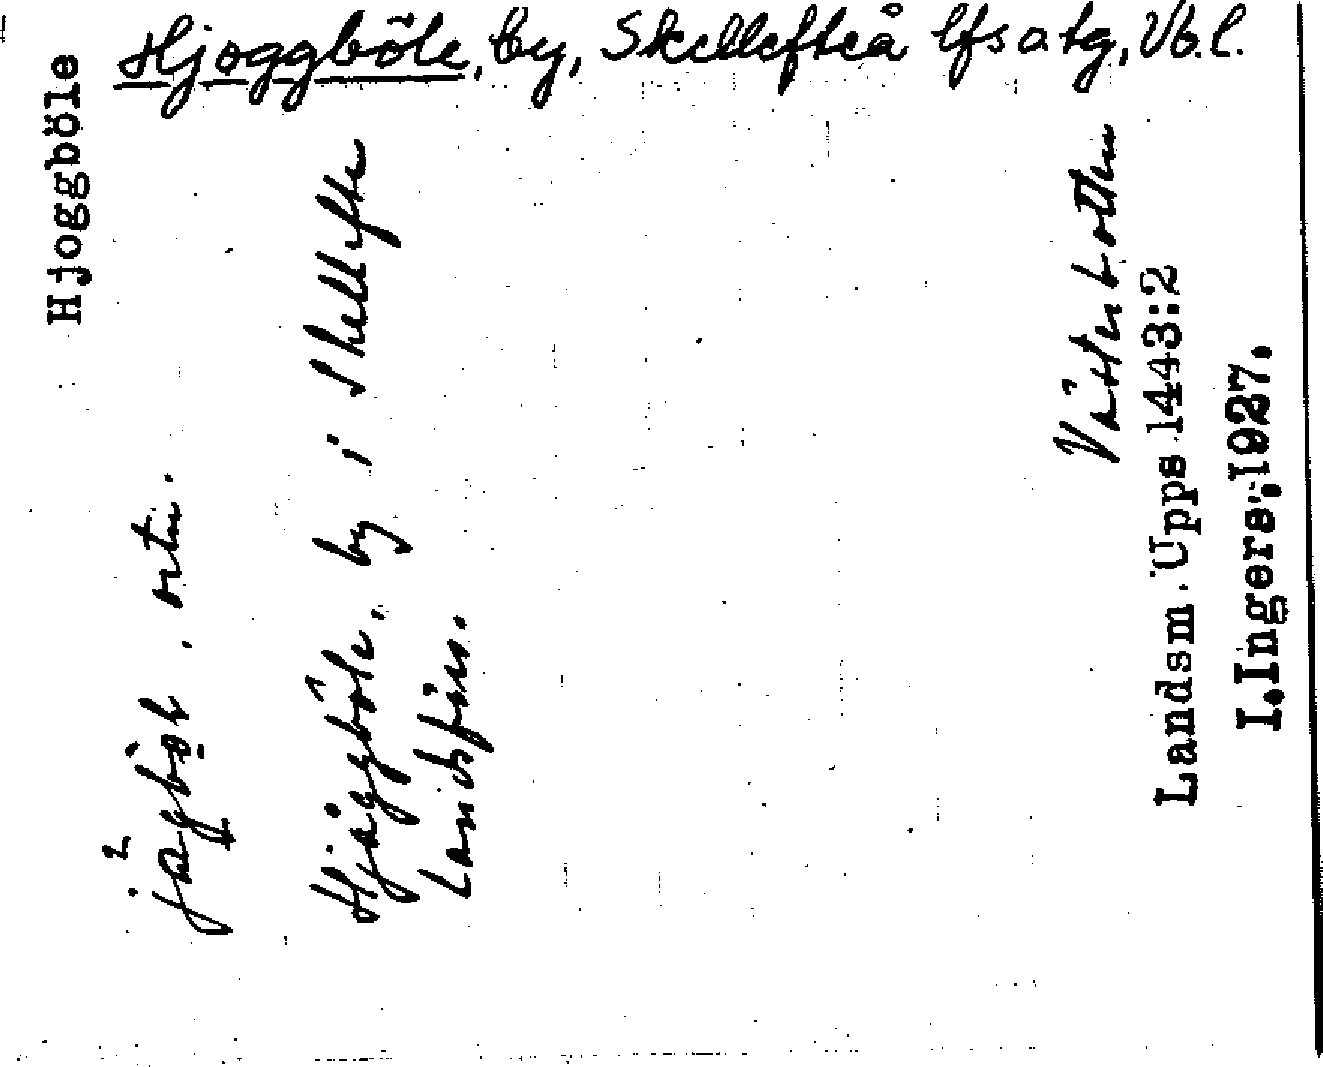 Hjoggböle, by, Skellefteå lfs o tg, Vb. l.
Hjoggböle
ortn.
Hjåggböle, by i Skellefte
Landsförs.
Västerbotten
Landsm. Upps 1443:2
I. Ingers, 1927.